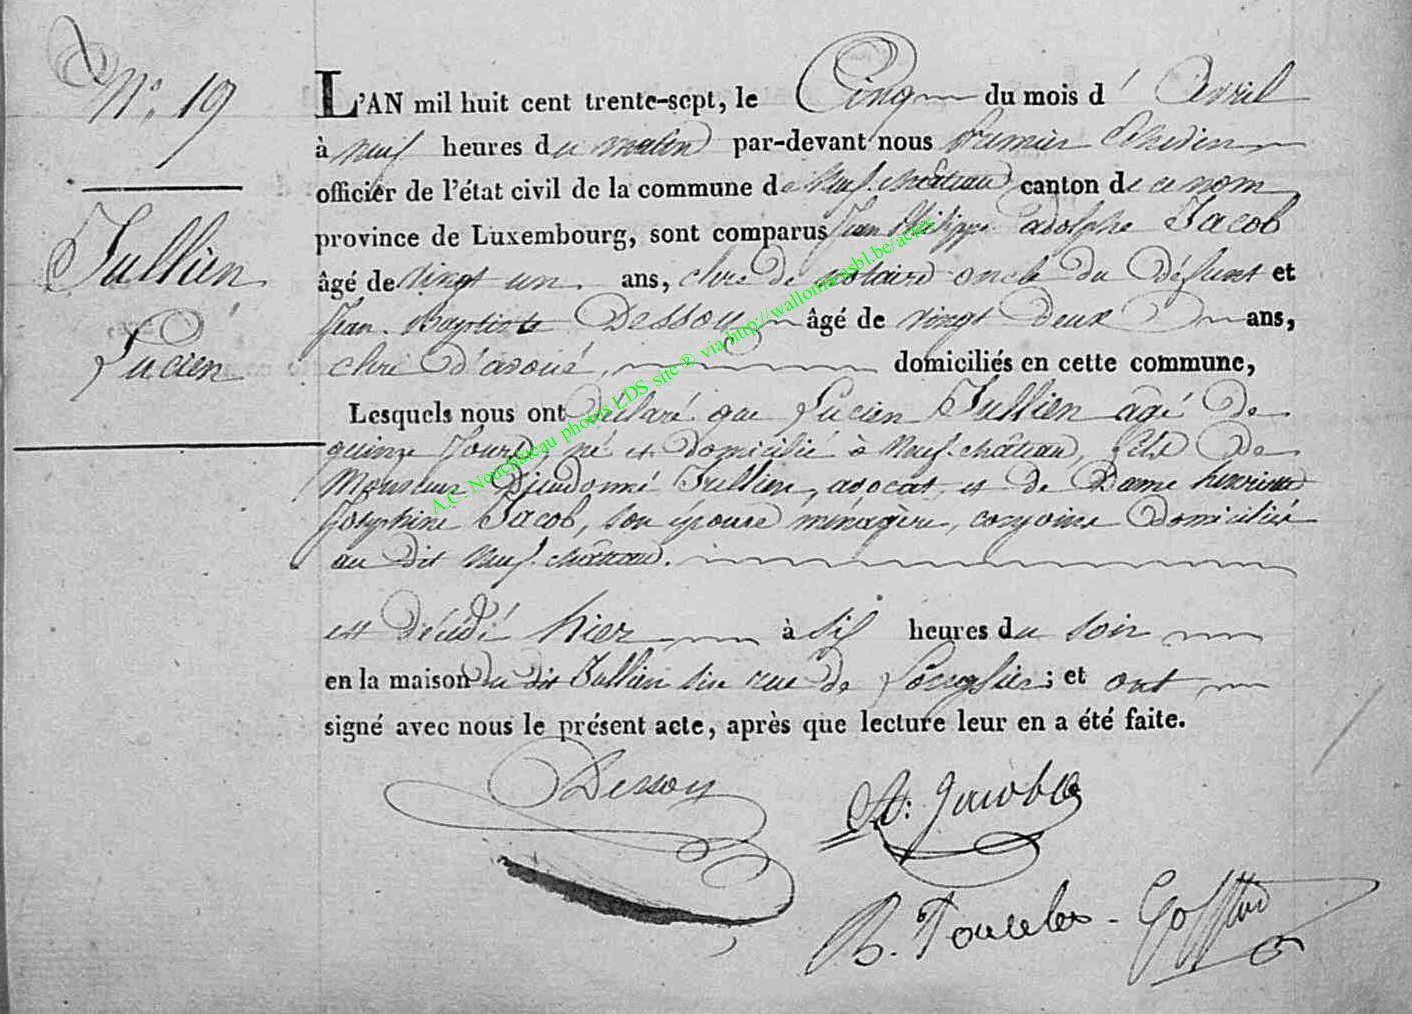 N° 19
Jullien
Lucien
L'AN mil huit cent trente-sept, le Cinq du mois d' Avril
à neuf heures du matin par-devant nous premier Echevin
officier de l'état civil de la commune de Neufchâteau canton de ce nom
province de Luxembourg, sont comparus Jean Philippe adolphe Jacob
âgé de vingt un ans, clerc de notaire oncle du défunt et
Jean Baptiste Dessoy âgé de vingt deux ans,
clerc d'avoué, domiciliés en cette commune,
Lesquels nous ont déclaré que Lucien Jullien agé de
quinze jours, né et domicilié à Neufchâteau, fils de
Monsieur Dieudonné Jullien, avocat, et de Dame henriette
Josephine Jacob, son épouse ménagère, conjoints domiciliés
au dit Neufchâteau.
est décédé hier à six heures du soir
en la maison du dit Jullien sise rue de Longlier; et ont
signé avec nous le présent acte, après que lecture leur en a été faite.
Dessoy
A: Jacob
B. Goffard
A.C. Neufchâteau photos LDS site ® via http://wallonia-asbl.be/actes